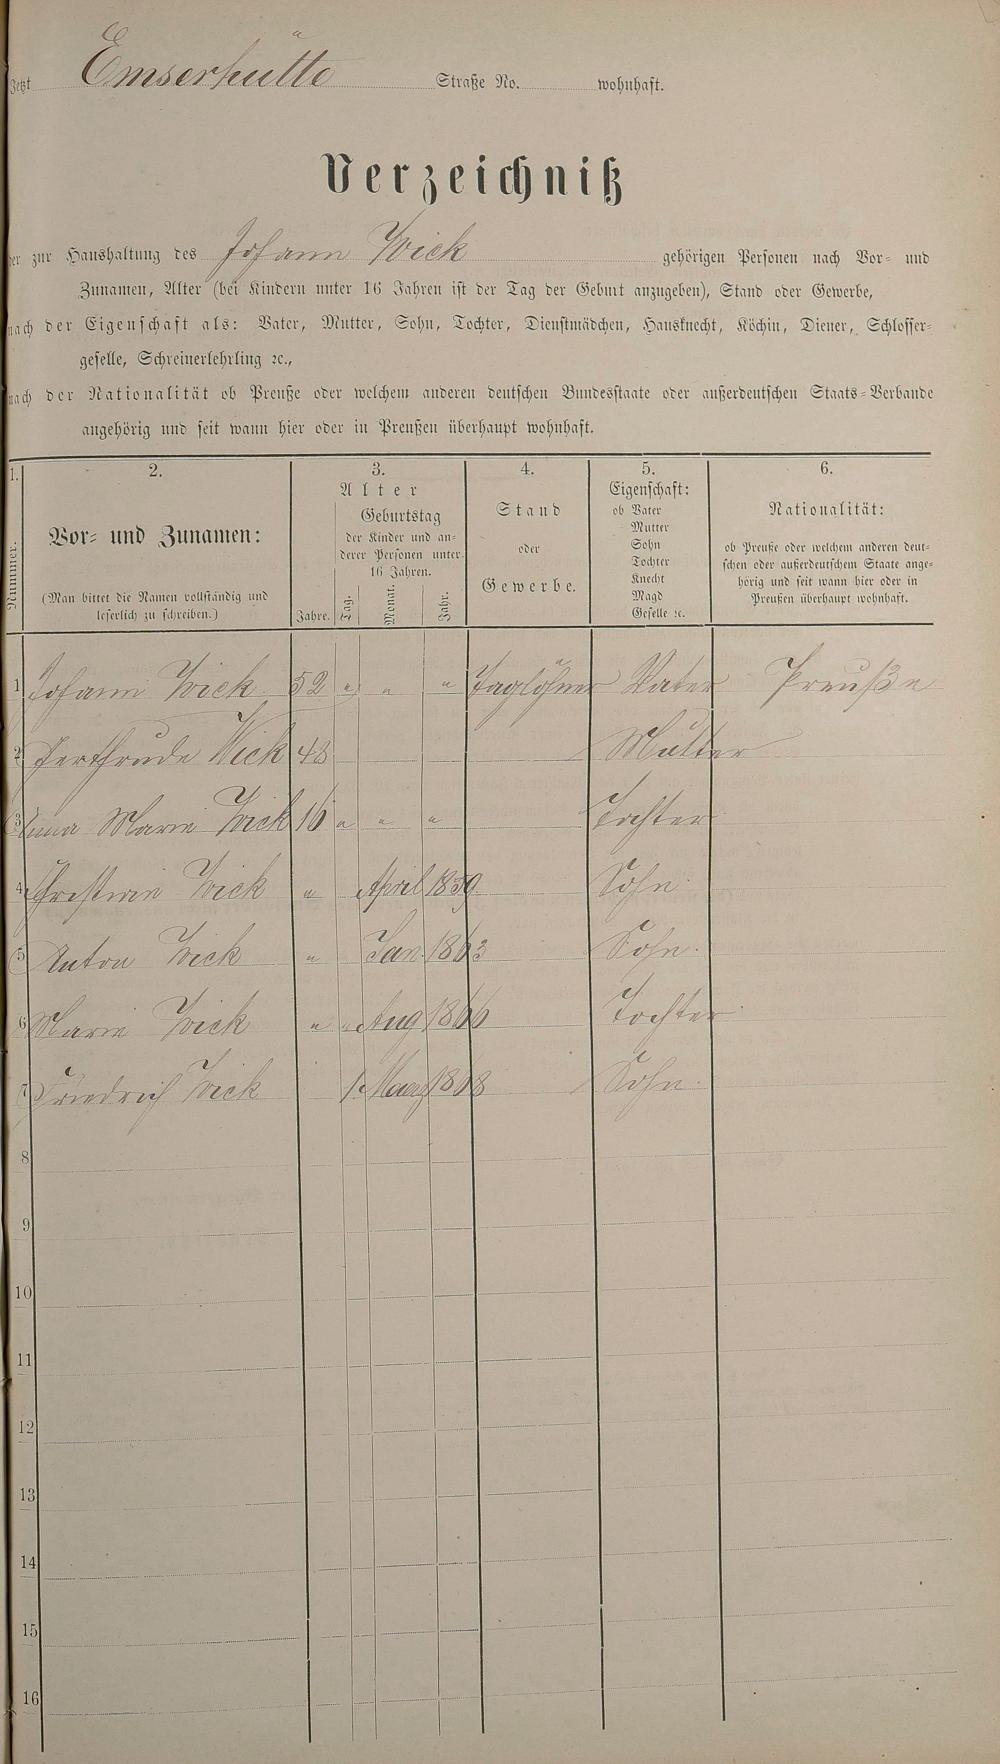 Jetzt Emserhütte Straße No. wohnhaft.
Verzeichniß
der zur Haushaltung des Johann Wick gehörigen Personen nach Vor- und
Zunamen, Alter (bei Kindern unter 16 Jahren ist der Tag der Geburt anzugeben), Stand oder Gewerbe,
nach der Eigenschaft als: Vater, Mutter, Sohn, Tochter, Dienstmädchen, Hausknecht, Köchin, Diener, Schlosser-
geselle, Schreinerlehrling ꝛc.,
nach der Nationalität ob Preuße oder welchem anderen deutschen Bundesstaate oder außerdeutschen Staats-Verbande
angehörig und seit wann hier oder in Preußen überhaupt wohnhaft.
1. 2. 3. 4. 5. 6.
Nummer.
Vor- und Zunamen:
(Man bittet die Namen vollständig und
leserlich zu schreiben.)
Alter
Jahre.
Geburtstag
der Kinder und an-
derer Personen unter
16 Jahren.
Tag. Monat. Jahr.
Stand
oder
Gewerbe.
Eigenschaft:
ob Vater
Mutter
Sohn
Tochter
Knecht
Magd
Geselle ꝛc.
Nationalität:
ob Preuße oder welchem anderen deut-
schen oder außerdeutschem Staate ange-
hörig und seit wann hier oder in
Preußen überhaupt wohnhaft.
1 Johann Wick 52 " " " Taglöhner Vater Preuße
2 Gerthrude Wick 48 Mutter
3 Anna Marie Wick 16 " " " Tochter
4 Wick " April 1859 Sohn
5 Anton Wick " Jan. 1863 Sohn.
6 Marie Wick " " Aug 1866 Tochter
7 Friedrich Wick 1. Maerz 1868 Sohn.
8
9
10
11
12
13
14
15
16